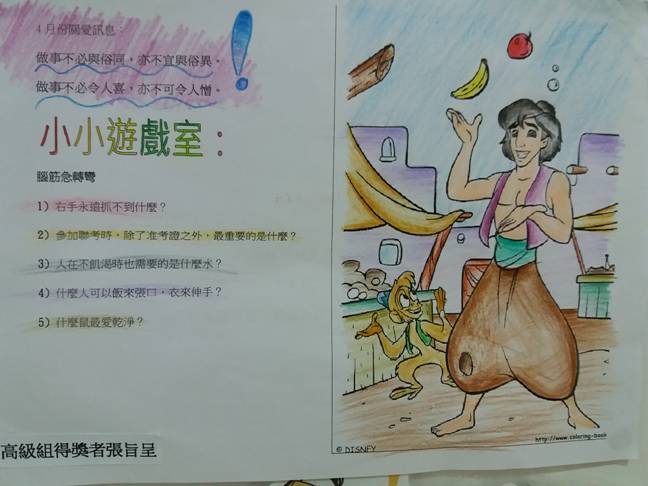 4月份關愛訊息：
做事不必與俗同，亦不宜與俗異。
做事不必令人喜，亦不可令人憎。
！
小小遊戲室：
腦筋急轉彎
1）右手永遠抓不到什麼？
2）參加聯考時，除了准考證之外，最重要的是什麼？
3）人在不飢渴時也需要的是什麼水？
4）什麼人可以飯來張口，衣來伸手？
5）什麼鼠最愛乾淨？
高級組得獎者張旨呈
© DISNEY
http://www.coloring-book